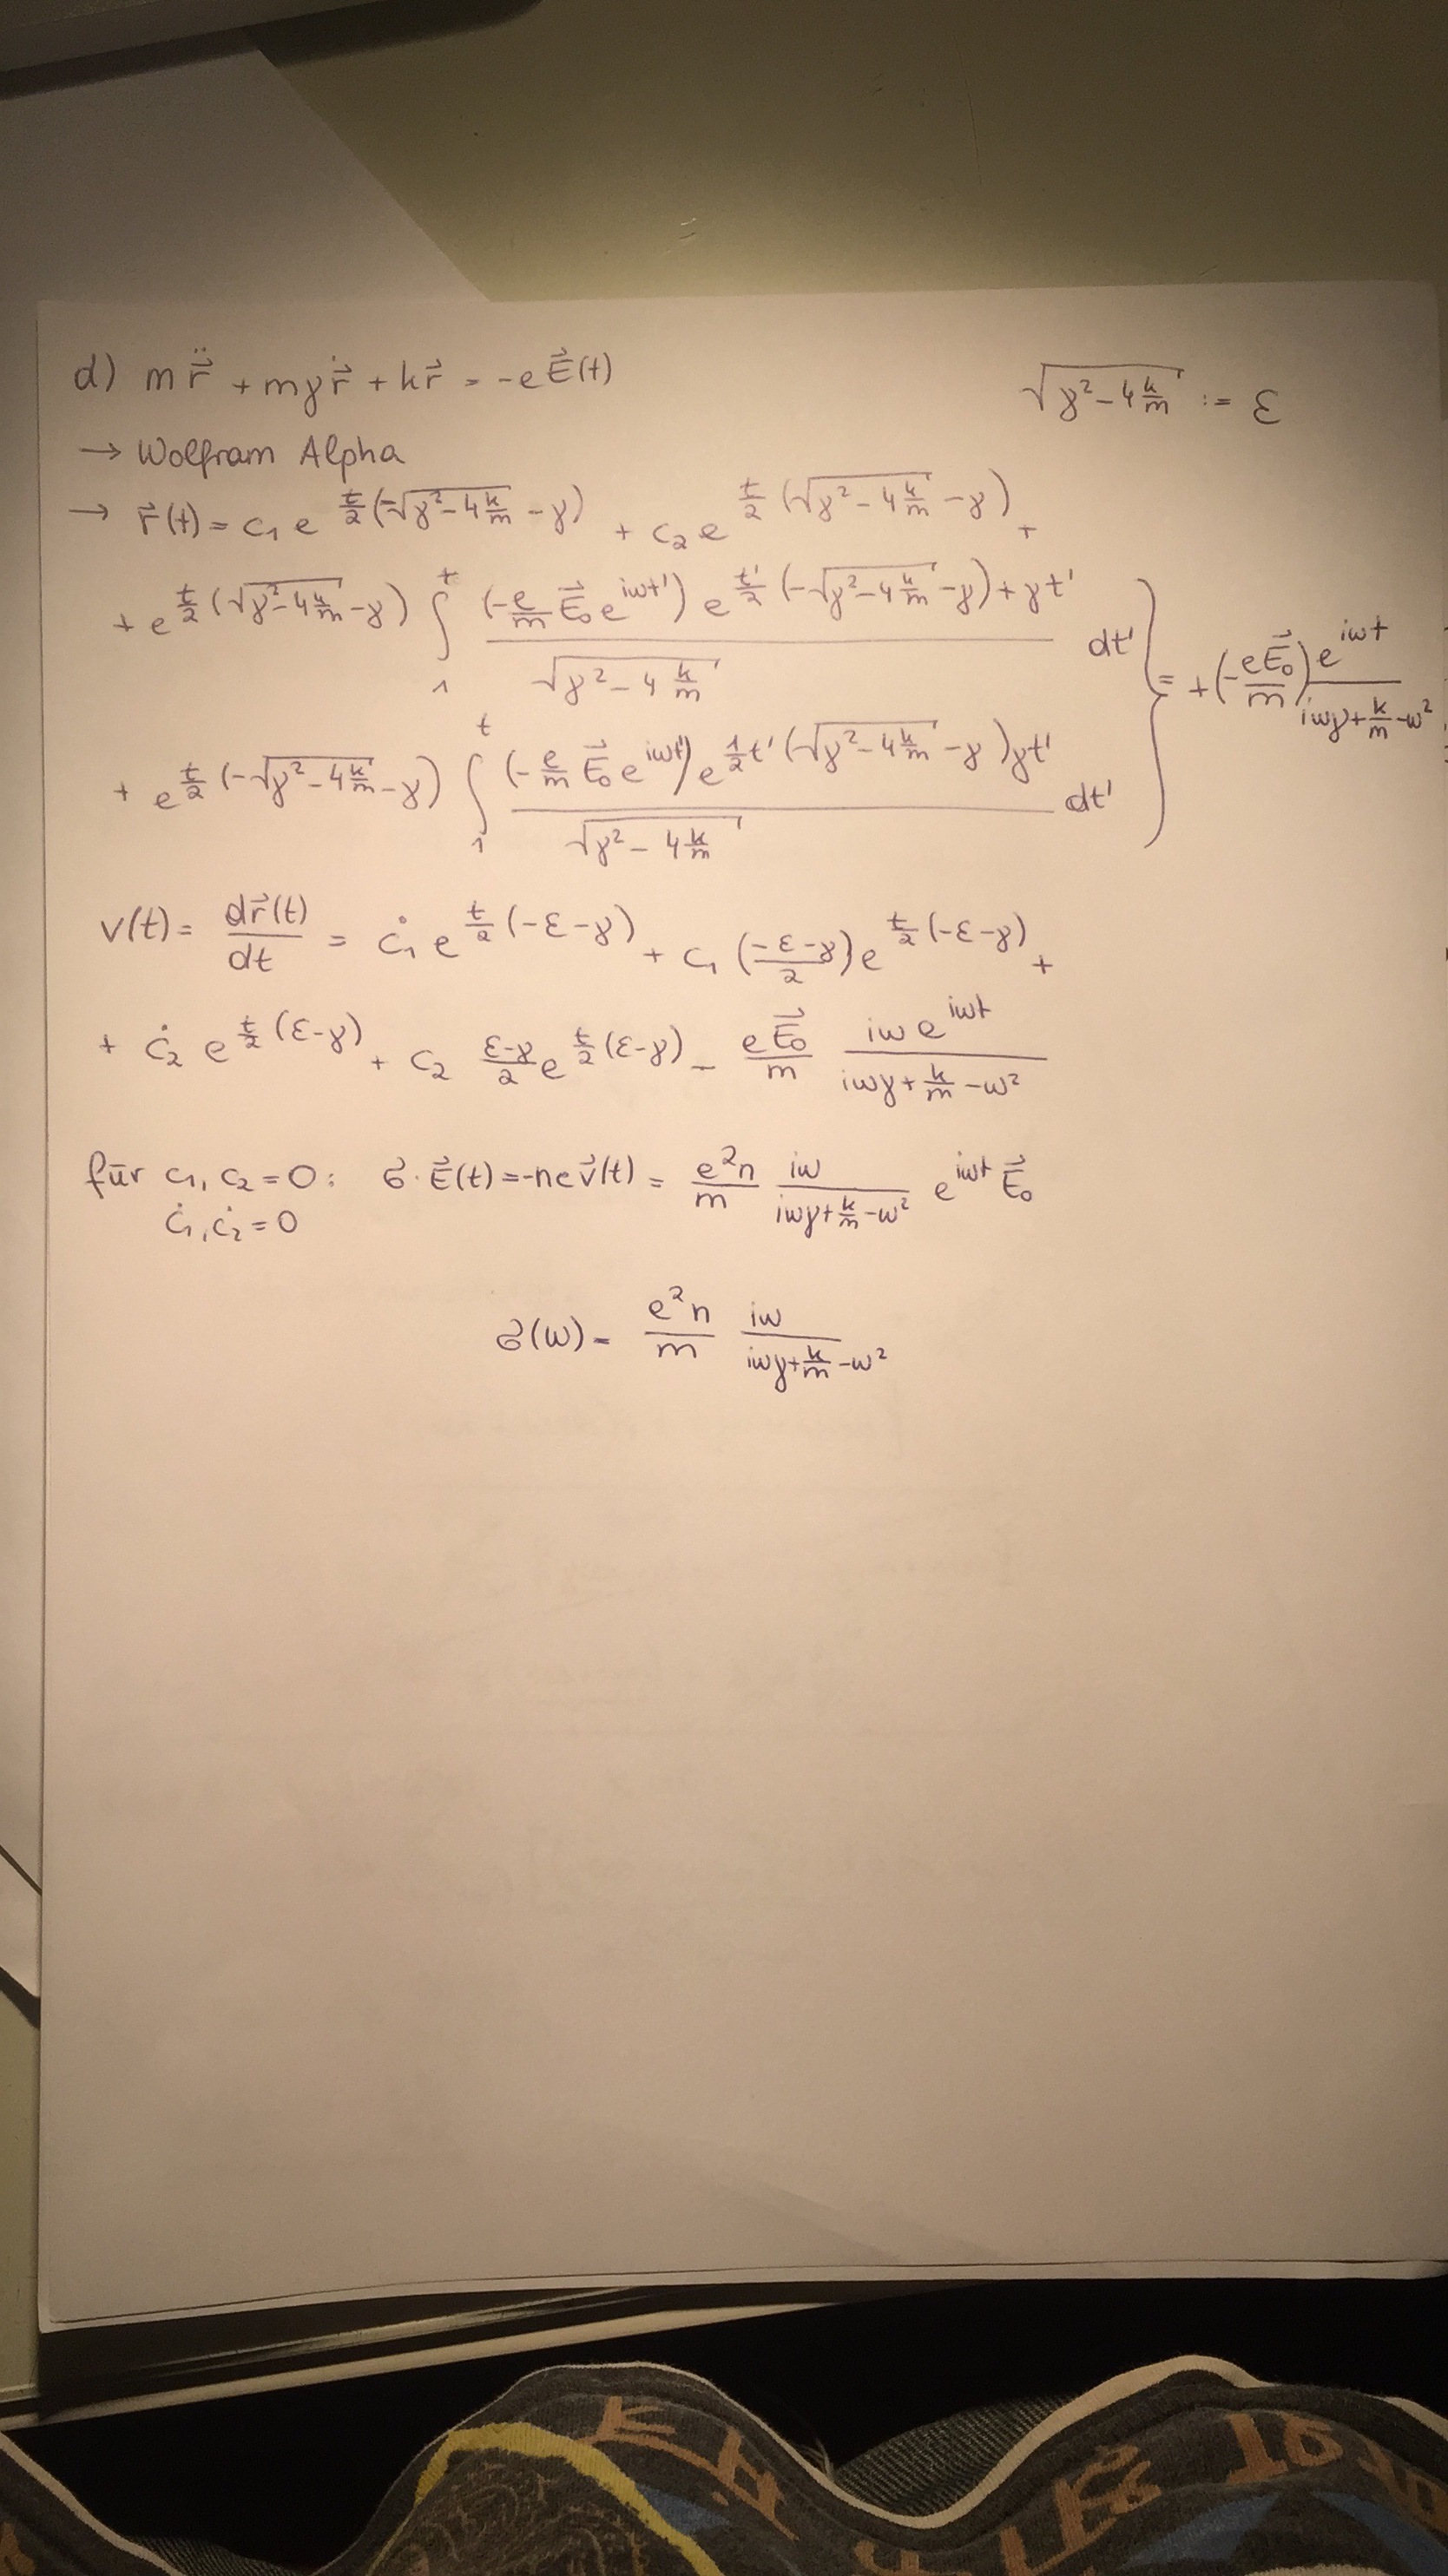 d) m r⃗̈ + mγ r⃗̇ + k r⃗ = -e E⃗(t)
√(γ² - 4 k/m) := ε
→ Wolfram Alpha
→ r⃗(t) = c₁ e^{t/2 (-√(γ² - 4 k/m) - γ)} + c₂ e^{t/2 (√(γ² - 4 k/m) - γ)} +
+ e^{t/2 (√(γ² - 4 k/m) - γ)} ∫₁ᵗ (-e/m E⃗₀ e^{iωt'}) e^{t'/2 (-√(γ² - 4 k/m) - γ) + γt'} / √(γ² - 4 k/m) dt'
+ e^{t/2 (-√(γ² - 4 k/m) - γ)} ∫₁ᵗ (-e/m E⃗₀ e^{iωt'}) e^{1/2 t' (√(γ² - 4 k/m) - γ) γt'} / √(γ² - 4 k/m) dt'
} = + (-eE⃗₀/m) e^{iωt} / (iωγ + k/m - ω²)
v(t) = dr⃗(t)/dt = ċ₁ e^{t/2 (-ε-γ)} + c₁ ((-ε-γ)/2) e^{t/2 (-ε-γ)} +
+ ċ₂ e^{t/2 (ε-γ)} + c₂ (ε-γ)/2 e^{t/2 (ε-γ)} - eE⃗₀/m iω e^{iωt} / (iωγ + k/m - ω²)
für c₁, c₂ = 0 : σ · E⃗(t) = -ne v⃗(t) = e²n/m iω / (iωγ + k/m - ω²) e^{iωt} E⃗₀
ċ₁, ċ₂ = 0
σ(ω) = e²n/m iω / (iωγ + k/m - ω²)